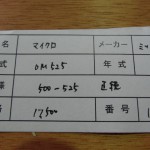 名 マイクロ メーカー ミツ
式 OM525 年式
様 500-525 直径
番 17500 番号 1